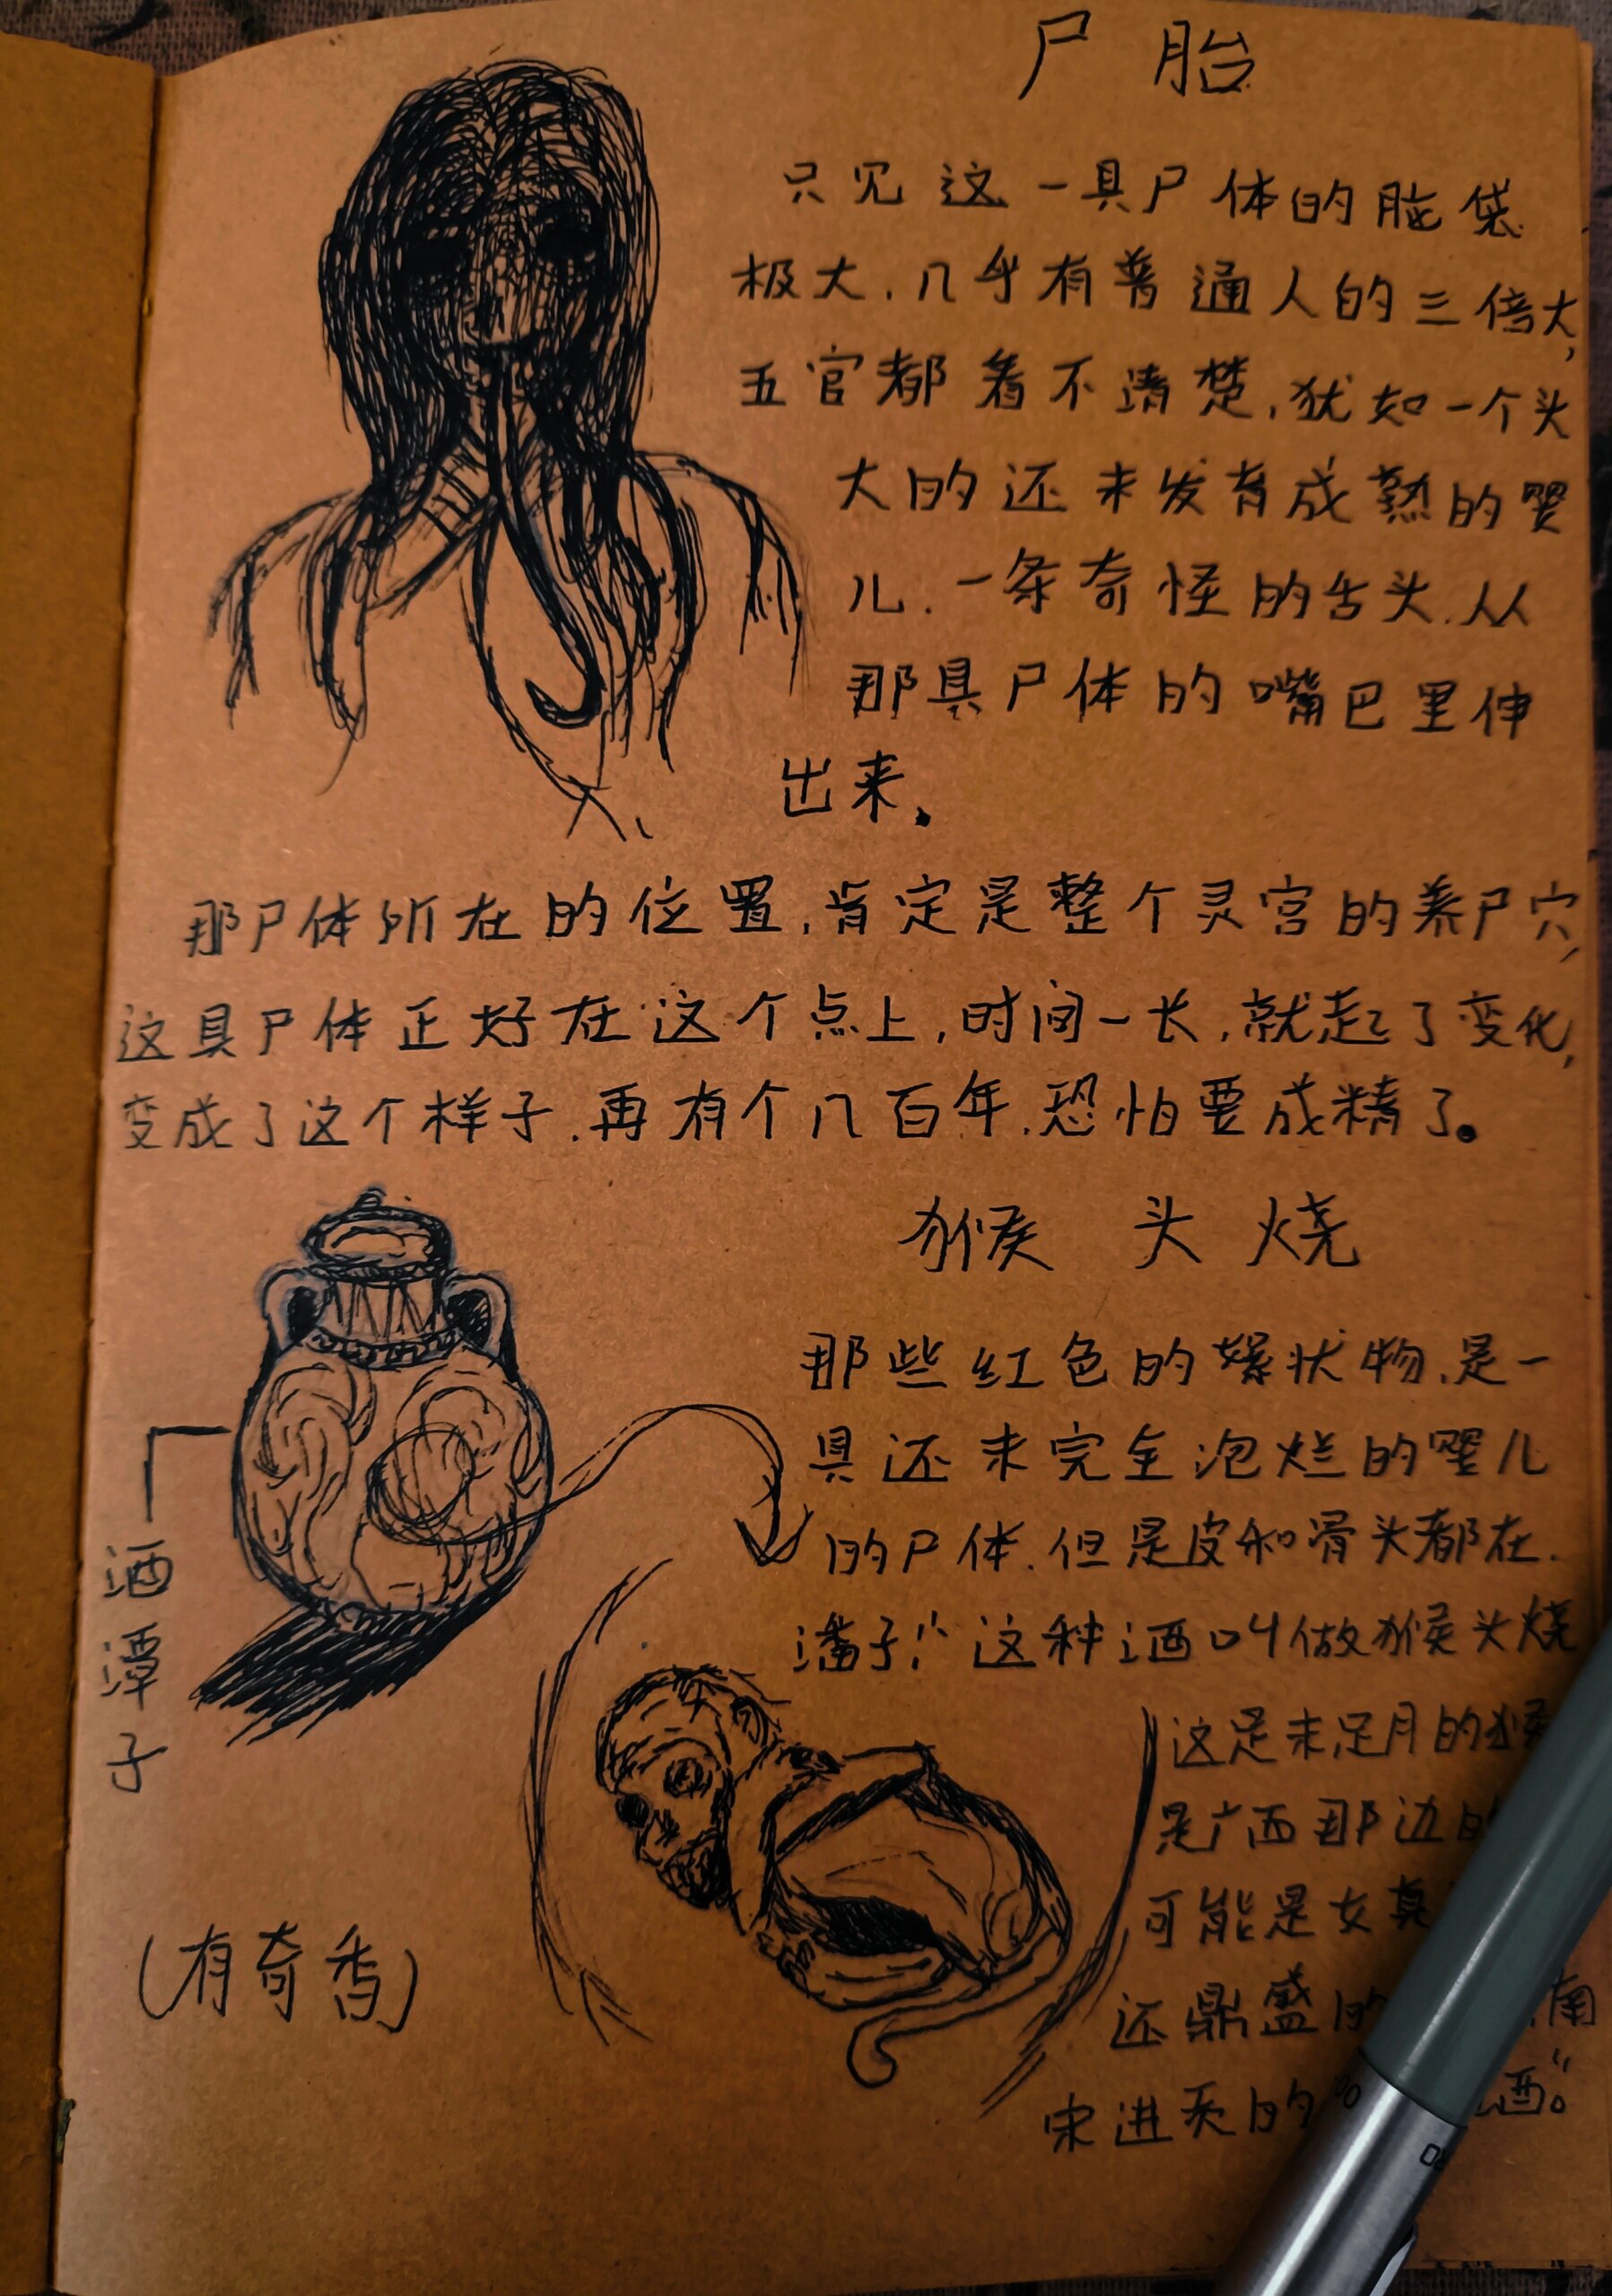 尸胎
只见这一具尸体的脑袋
极大,几乎有普通人的三倍大,
五官都看不清楚,犹如一个头
大的还未发育成熟的婴
儿,一条奇怪的舌头,从
那具尸体的嘴巴里伸
出来。
那尸体所在的位置,肯定是整个灵宫的养尸穴,
这具尸体正好在这个点上,时间一长,就起了变化,
变成了这个样子,再有个几百年,恐怕要成精了。
猴头烧
那些红色的絮状物,是一
具还未完全泡烂的婴儿
的尸体,但是皮和骨头都在.
潘子:“这种酒叫做猴头烧
这是未足月的猴
是广西那边的
可能是女真
还鼎盛的 南
宋进贡的 酒。”
酒潭子
(有奇香)